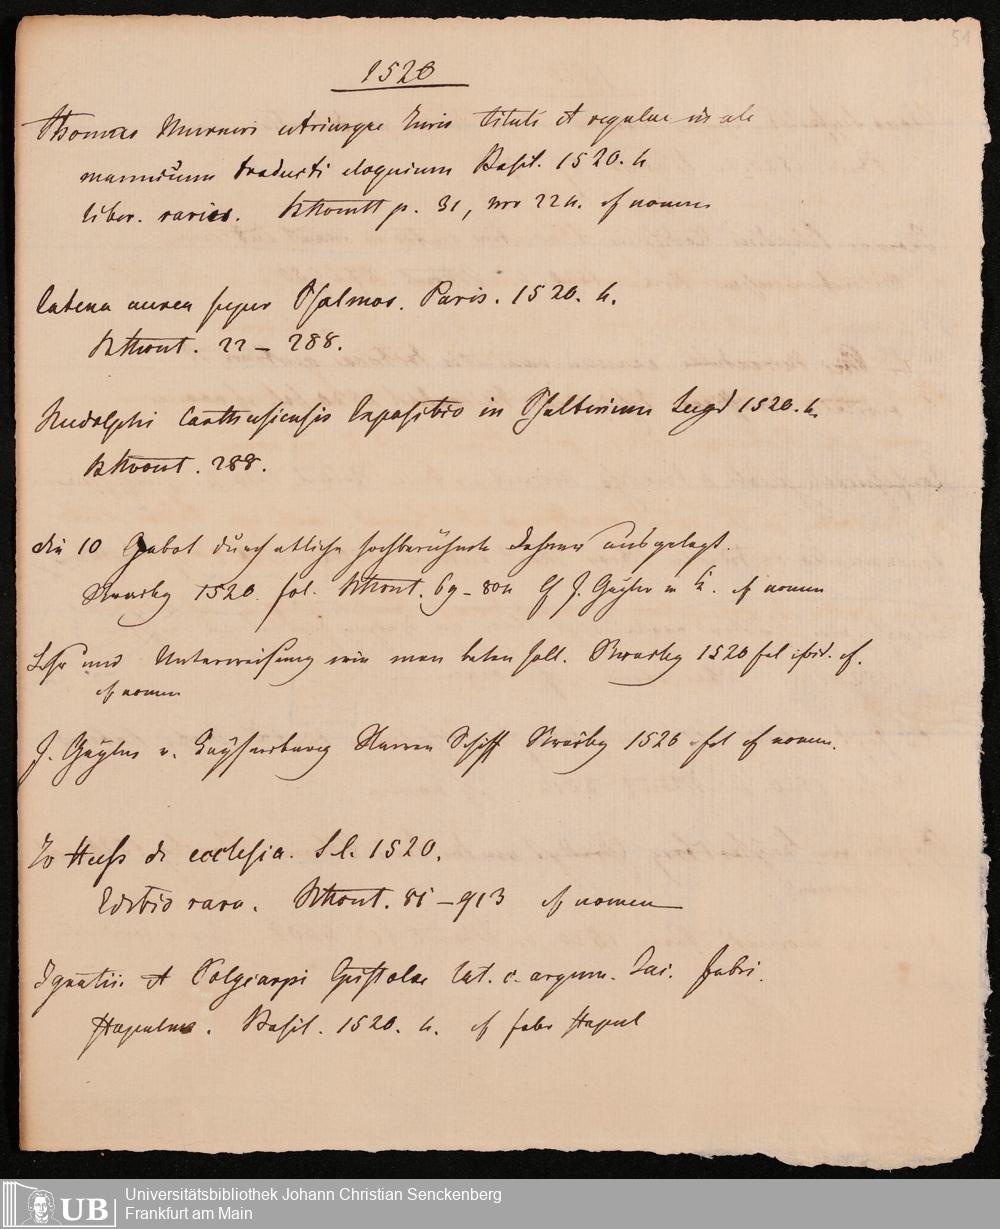 51
1520
Thomae Murneri utriusque Juris tituli et regulae in ale
mannicum traducti eloquium Basil. 1520. 4
liber. rarior. p. 31, nro 224. cf nomen
Catena aurea super Psalmos. Paris. 1520. 4.
22 – 288.
Ludolphi Carthusiensis Expositio in Psalterium Lugd 1520. 4
288.
die 10 Gebot durch etliche hochberühmte Lehrer ausgelegt.
Strasbg 1520. fol. 69 – 804 Cf J. Geyler v K. cf nomen
Lehr und Unterweisung wie man beten soll. Strasbg 1520 fol ibid. cf.
cf nomen
J. Geyler v. Kaysersberg Narren Schiff Strasbg 1520 fol cf nomen.
Jo Huss de ecclesia. S. l. 1520.
Editio rara. 81 – 913 cf nomen
Ignatii et Polycarpi Epistolae lat. c. argum. Jac. Fabri.
Stapulens. Basil. 1520. 4. cf faber Stapul
UB
Universitätsbibliothek Johann Christian Senckenberg
Frankfurt am Main